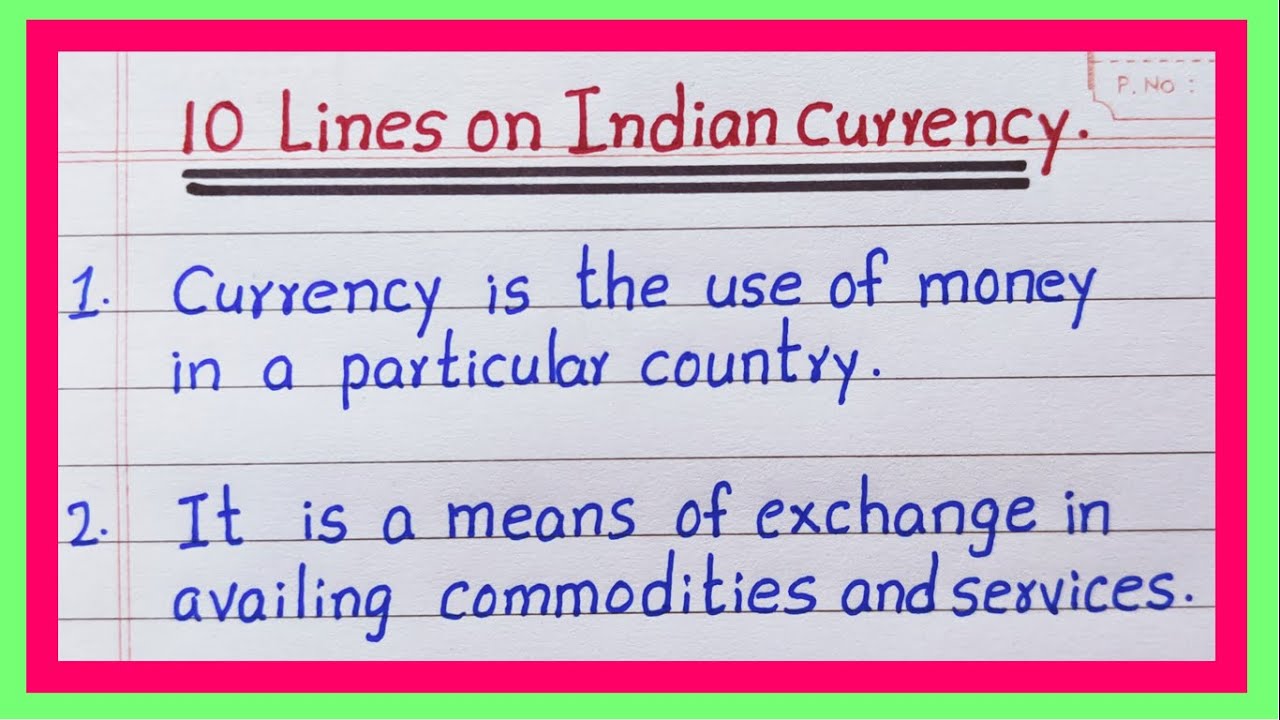 P. No :
10 Lines on Indian Currency.
1. Currency is the use of money
in a particular country.
2. It is a means of exchange in
availing commodities and services.